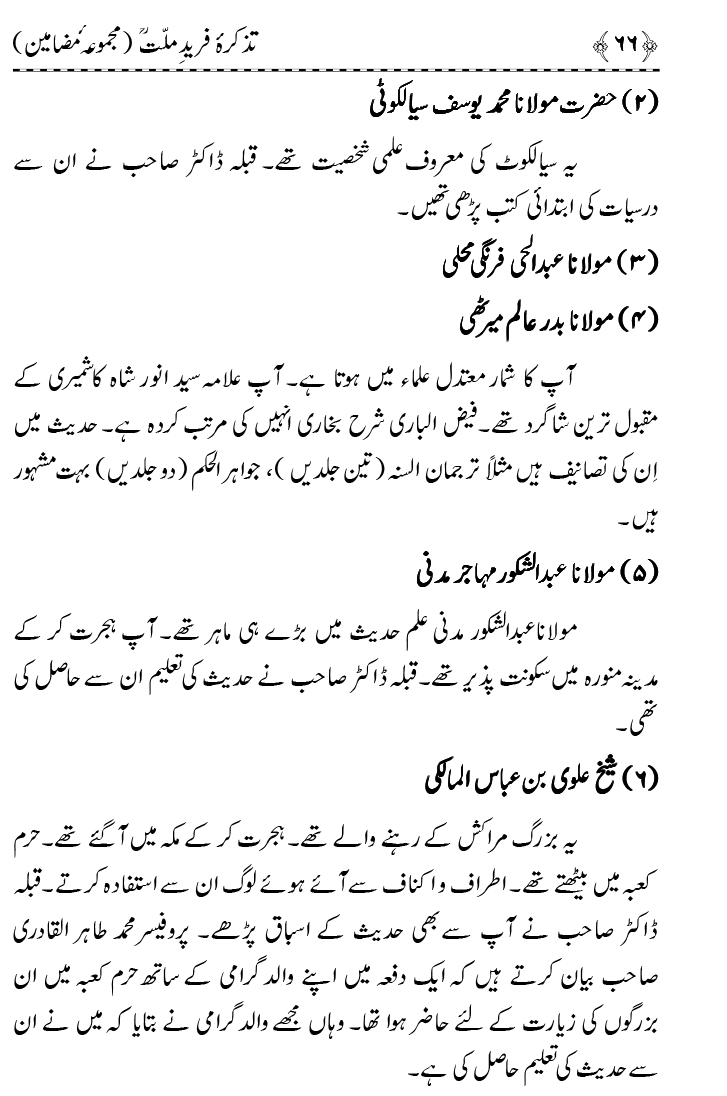 ﴿۶۶﴾ تذکرۂ فریدِ ملّتؒ (مجموعہ مضامین)
(۲) حضرت مولانا محمد یوسف سیالکوٹی
یہ سیالکوٹ کی معروف علمی شخصیت تھے۔ قبلہ ڈاکٹر صاحب نے ان سے
درسیات کی ابتدائی کتب پڑھی تھیں۔
(۳) مولانا عبدالحی فرنگی محلی
(۴) مولانا بدر عالم میرٹھی
آپ کا شمار معتدل علماء میں ہوتا ہے۔ آپ علامہ سید انور شاہ کاشمیری کے
مقبول ترین شاگرد تھے۔ فیض الباری شرح بخاری انہیں کی مرتب کردہ ہے۔ حدیث میں
اِن کی تصانیف ہیں مثلاً ترجمان السنہ (تین جلدیں)، جواہر الحکم (دو جلدیں) بہت مشہور
ہیں۔
(۵) مولانا عبدالشکور مہاجر مدنی
مولانا عبدالشکور مدنی علم حدیث میں بڑے ہی ماہر تھے۔ آپ ہجرت کر کے
مدینہ منورہ میں سکونت پذیر تھے۔ قبلہ ڈاکٹر صاحب نے حدیث کی تعلیم ان سے حاصل کی
تھی۔
(۶) شیخ علوی بن عباس المالکی
یہ بزرگ مراکش کے رہنے والے تھے۔ ہجرت کر کے مکہ میں آ گئے تھے۔ حرم
کعبہ میں بیٹھتے تھے۔ اطراف و اکناف سے آئے ہوئے لوگ ان سے استفادہ کرتے۔ قبلہ
ڈاکٹر صاحب نے آپ سے بھی حدیث کے اسباق پڑھے۔ پروفیسر محمد طاہر القادری
صاحب بیان کرتے ہیں کہ ایک دفعہ میں اپنے والد گرامی کے ساتھ حرم کعبہ میں ان
بزرگوں کی زیارت کے لئے حاضر ہوا تھا۔ وہاں مجھے والد گرامی نے بتایا کہ میں نے ان
سے حدیث کی تعلیم حاصل کی ہے۔